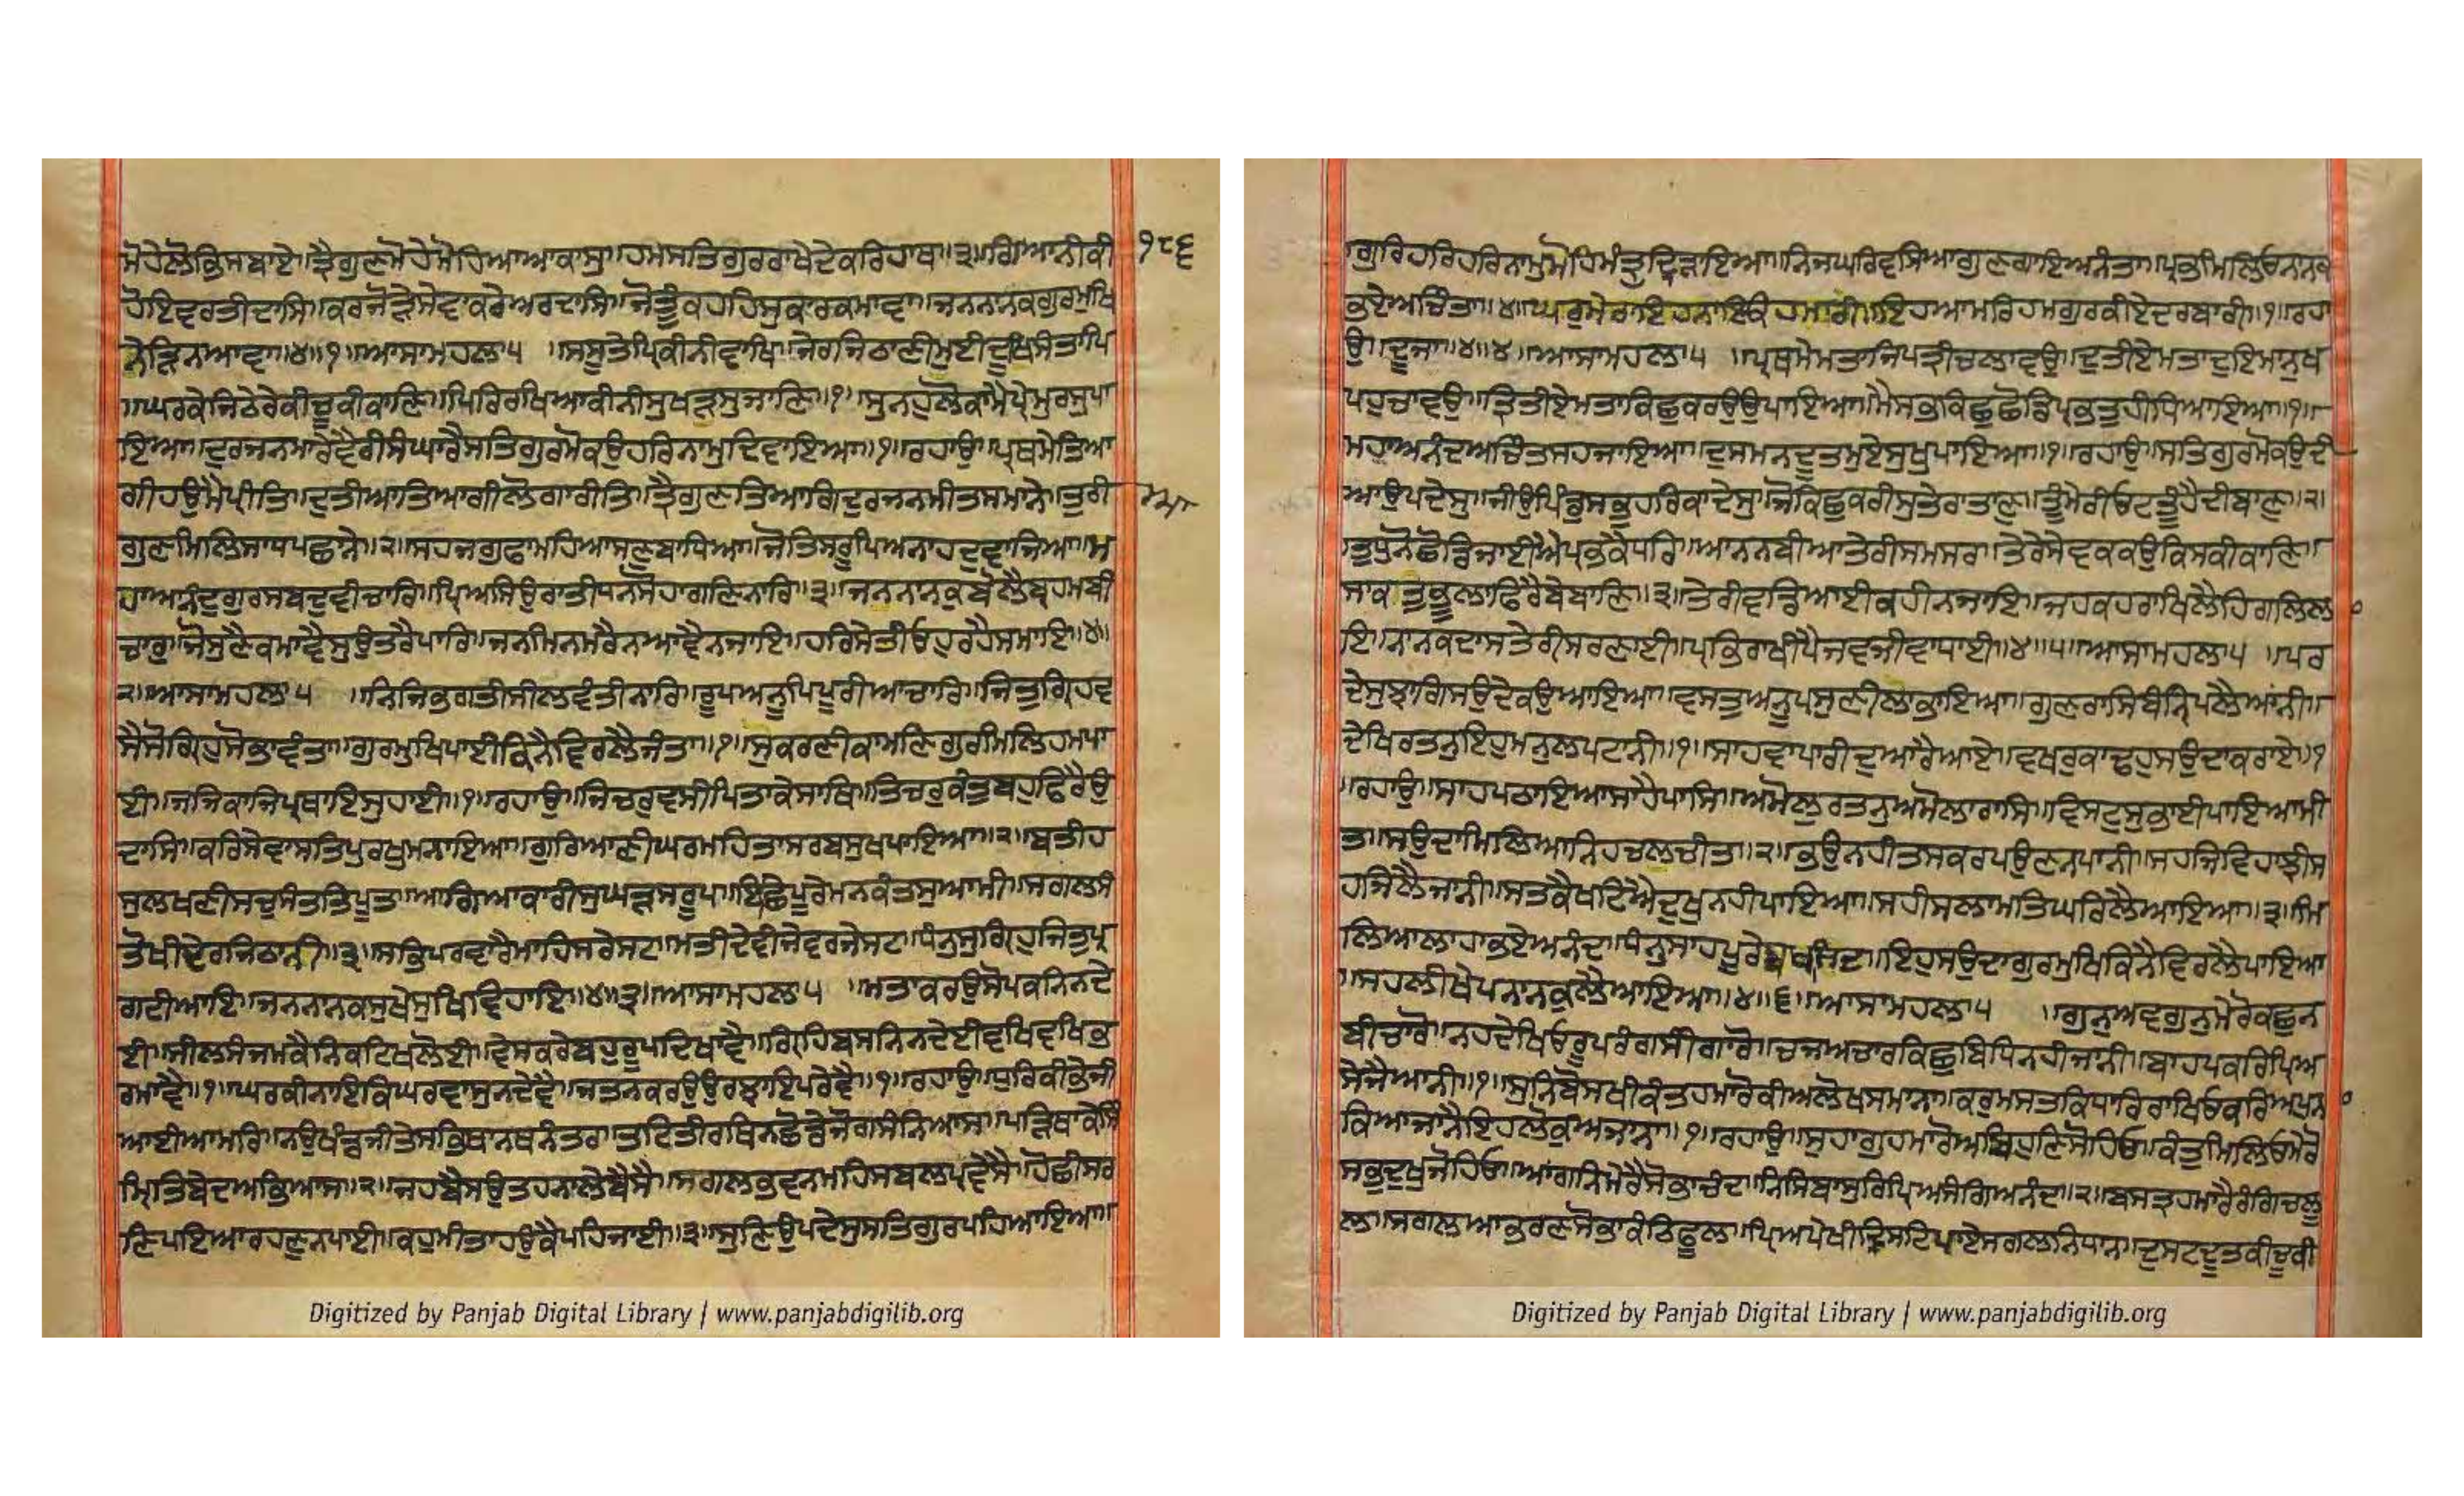 ਮੋਹੇਲੋਭਿਸਬਾਏ॥ਤ੍ਰੈਗੁਣਮੋਹੇਮੋਹਿਆਆਕਾਸੁ॥ਹਮਸਤਿਗੁਰਰਾਖੇਦੇਕਰਿਹਾਥ॥੩॥ਗਿਆਨੀਕੀ
ਹੋਇਵਰਤੀਦਾਸਿ॥ਕਰਜੋੜੇਸੇਵਾਕਰੇਅਰਦਾਸਿ॥ਜੋਤੂੰਕਹਹਿਸੁਕਾਰਕਮਾਵਾ॥ਜਨਨਾਨਕਗੁਰਮੁਖਿ
ਨੇੜਿਨਆਵਾ॥੪॥੧॥ਆਸਾਮਹਲਾ੫ ॥ਸਸੂਤੇਪਿਰਿਕੀਨੀਵਾਖਿ॥ਜੇਰਜਿਠਾਣੀਮੁਈਦੂਖਿਸੰਤਾਪਿ
॥ਘਰਕੇਜਿਠੇਰੇਕੀਚੂਕੀਕਾਣਿ॥ਪਿਰਿਰਖਿਆਕੀਨੀਸੁਘੜਸੁਜਾਣਿ॥੧॥ਸੁਨਹੁਲੋਕਾਮੈਪ੍ਰੇਮਰਸੁਪਾ
ਇਆ॥ਦੁਰਜਨਮਾਰੇਵੈਰੀਸੰਘਾਰੇਸਤਿਗੁਰਮੋਕਉਹਰਿਨਾਮੁਦਿਵਾਇਆ॥੧॥ਰਹਾਉ॥ਪ੍ਰਥਮੇਤਿਆ
ਗੀਹਉਮੈਪ੍ਰੀਤਿ॥ਦੁਤੀਆਤਿਆਗੀਲੋਗਾਰੀਤਿ॥ਤ੍ਰੈਗੁਣਤਿਆਗਿਦੁਰਜਨਮੀਤਸਮਾਨੇ॥ਤੁਰੀ
ਗੁਣਮਿਲਿਸਾਧਪਛਾਨੇ॥੨॥ਸਹਜਗੁਫਾਮਹਿਆਸਣੁਬਾਧਿਆ॥ਜੋਤਿਸਰੂਪਿਅਨਾਹਦੁਵਾਜਿਆ॥ਮ
ਹਾਅਨੰਦੁਗੁਰਸਬਦੁਵੀਚਾਰਿ॥ਪ੍ਰਿਅਸਿਉਰਾਤੀਧਨਸੋਹਾਗਣਿਨਾਰਿ॥੩॥ਜਨਨਾਨਕੁਬੋਲੈਬ੍ਰਹਮਬੀ
ਚਾਰੁ॥ਜੋਸੁਣੈਕਮਾਵੈਸੁਉਤਰੈਪਾਰਿ॥ਜਨਮਿਨਮਰੈਨਆਵੈਨਜਾਇ॥ਹਰਿਸੇਤੀਓਹੁਰਹੈਸਮਾਇ॥੪॥
੨॥ਆਸਾਮਹਲਾ੫ ॥ਨਿਜਭਗਤੀਸੀਲਵੰਤੀਨਾਰਿ॥ਰੂਪਅਨੂਪਿਪੂਰੀਆਚਾਰਿ॥ਜਿਤੁਗ੍ਰਿਹਵ
ਸੈਸੋਗ੍ਰਿਹੁਸੋਭਾਵੰਤਾ॥ਗੁਰਮੁਖਿਪਾਈਕਿਨੈਵਿਰਲੈਜੰਤਾ॥੧॥ਸੁਕਰਣੀਕਾਮਣਿਗੁਰਮਿਲਿਹਮਪਾ
ਈ॥ਜਜਿਕਾਜਿਪ੍ਰਥਾਇਸੁਹਾਈ॥੧॥ਰਹਾਉ॥ਜਿਚਰੁਵਸੀਪਿਤਾਕੇਸਾਥਿ॥ਤਿਚਰੁਕੰਤੁਬਹੁਫਿਰੈਉ
ਦਾਸਿ॥ਕਰਿਸੇਵਾਸਤਿਪੁਰਖੁਮਨਾਇਆ॥ਗੁਰਿਆਣੀਘਰਮਹਿਤਾਸਰਬਸੁਖਪਾਇਆ॥੨॥ਬਤੀਹ
ਸੁਲਖਣੀਸਚੁਸੰਤਤਿਪੂਤ॥ਆਗਿਆਕਾਰੀਸੁਘੜਸਰੂਪ॥ਇਛਪੂਰੇਮਨਕੰਤਸੁਆਮੀ॥ਸਗਲਸੰ
ਤੋਖੀਦੇਰਜਿਠਾਨੀ॥੩॥ਸਭਿਪਰਵਾਰੈਮਾਹਿਸਰੇਸਟ॥ਮਤੀਦੇਵੀਜੇਵਰਜੇਸਟ॥ਧੰਨੁਸੁਗ੍ਰਿਹੁਜਿਤੁਪ੍ਰ
ਗਟੀਆਇ॥ਜਨਨਾਨਕਸੁਖੇਸੁਖਿਵਿਹਾਇ॥੪॥੩॥ਆਸਾਮਹਲਾ੫ ॥ਮਤਾਕਰਉਸੋਪਕਨਿਨਦੇ
ਈ॥ਸੀਲਸੰਜਮਕੈਨਿਕਟਿਖਲੋਈ॥ਵੇਸਕਰੇਬਹੁਰੂਪਦਿਖਾਵੈ॥ਗ੍ਰਿਹਿਬਸਨਿਨਦੇਈਵਖਿਵਖਿਭ
ਰਮਾਵੈ॥੧॥ਘਰਕੀਨਾਇਕਿਘਰਵਾਸੁਨਦੇਵੈ॥ਜਤਨਕਰਉਉਰਝਾਇਪਰੇਵੈ॥੧॥ਰਹਾਉ॥ਧੁਰਿਕੀਭੇਜੀ
ਆਈਆਮਰਿ॥ਨਉਖੰਡਜੀਤੇਸਭਿਥਾਨਥਨੰਤਰ॥ਤਟਿਤੀਰਥਿਨਛੋਡੈਜੋਗਸੰਨਿਆਸ॥ਪੜਿਥਾਕੇਸਿੰ
ਮ੍ਰਿਤਿਬੇਦਅਭਿਆਸ॥੨॥ਜਹਬੈਸਉਤਹਨਾਲੇਬੈਸੈ॥ਸਗਲਭਵਨਮਹਿਸਬਲਪ੍ਰਵੇਸੈ॥ਹੋਛੀਸਰ
ਣਿਪਇਆਰਹਣੁਨਪਾਈ॥ਕਹੁਮੀਤਾਹਉਕੈਪਹਿਜਾਈ॥੩॥ਸੁਣਿਉਪਦੇਸੁਸਤਿਗੁਰਪਹਿਆਇਆ॥
੧੮੬
ਗੁਰਿਹਰਿਹਰਿਨਾਮੁਮੋਹਿਮੰਤ੍ਰੁਦ੍ਰਿੜਾਇਆ॥ਨਿਜਘਰਿਵਸਿਆਗੁਣਗਾਇਅਨੰਤਾ॥ਪ੍ਰਭੁਮਿਲਿਓਨਾਨਕ
ਭਏਅਚਿੰਤਾ॥੪॥ਘਰੁਮੇਰਾਇਹਨਾਇਕਿਹਮਾਰੀ॥ਇਹਆਮਰਿਹਮਗੁਰਕੀਏਦਰਬਾਰੀ॥੧॥ਰਹਾ
ਉ॥ਦੂਜਾ॥੪॥੪॥ਆਸਾਮਹਲਾ੫ ॥ਪ੍ਰਥਮੇਮਤਾਜਿਪਤ੍ਰੀਚਲਾਵਉ॥ਦੁਤੀਏਮਤਾਦੁਇਮਾਨੁਖ
ਪਹੁਚਾਵਉ॥ਤ੍ਰਿਤੀਏਮਤਾਕਿਛੁਕਰਉਉਪਾਇਆ॥ਮੈਸਭੁਕਿਛੁਛੋਡਿਪ੍ਰਭਤੁਹੀਧਿਆਇਆ॥੧॥
ਮਹਾਅਨੰਦਅਚਿੰਤਸਹਜਾਇਆ॥ਦੁਸਮਨਦੂਤਮੁਏਸੁਖੁਪਾਇਆ॥੧॥ਰਹਾਉ॥ਸਤਿਗੁਰਮੋਕਉਦੀ
ਆਉਪਦੇਸੁ॥ਜੀਉਪਿੰਡੁਸਭੁਹਰਿਕਾਦੇਸੁ॥ਜੋਕਿਛੁਕਰੀਸੁਤੇਰਾਤਾਣੁ॥ਤੂੰਮੇਰੀਓਟਤੂੰਹੈਦੀਬਾਣੁ॥੨॥
ਤੁਧੁਨੋਛੋਡਿਜਾਈਐਪ੍ਰਭਕੈਂਧਰਿ॥ਆਨਨਬੀਆਤੇਰੀਸਮਸਰਿ॥ਤੇਰੇਸੇਵਕਕਉਕਿਸਕੀਕਾਣਿ॥
ਸਾਕਤੁਭੂਲਾਫਿਰੈਬੇਬਾਣਿ॥੩॥ਤੇਰੀਵਡਿਆਈਕਹੀਨਜਾਇ॥ਜਹਕਹਰਾਖਿਲੈਹਿਗਲਿਲਾ
ਇ॥ਨਾਨਕਦਾਸਤੇਰੀਸਰਣਾਈ॥ਪ੍ਰਭਿਰਾਖੀਪੈਜਵਜੀਵਾਧਾਈ॥੪॥੫॥ਆਸਾਮਹਲਾ੫ ॥ਪਰ
ਦੇਸੁਝਾਗਿਸਉਦੇਕਉਆਇਆ॥ਵਸਤੁਅਨੂਪਸੁਣੀਲਾਭਾਇਆ॥ਗੁਣਰਾਸਿਬੰਨ੍ਹਿਪਲੈਆਨੀ॥
ਦੇਖਿਰਤਨੁਇਹੁਮਨੁਲਪਟਾਨੀ॥੧॥ਸਾਹਵਾਪਾਰੀਦੁਆਰੈਆਏ॥ਵਖਰੁਕਾਢਹੁਸਉਦਾਕਰਾਏ॥੧
॥ਰਹਾਉ॥ਸਾਹਪਠਾਇਆਸਾਹੈਪਾਸਿ॥ਅਮੋਲਰਤਨੁਅਮੋਲਾਰਾਸਿ॥ਵਿਸਟੁਸੁਭਾਈਪਾਇਆਮੀ
ਤ॥ਸਉਦਾਮਿਲਿਆਨਿਹਚਲਚੀਤ॥੨॥ਭਉਨਹੀਤਸਕਰਪਉਣਨਪਾਨੀ॥ਸਹਜਿਵਿਹਾਝੀਸ
ਹਜਿਲੈਜਾਨੀ॥ਸਤਕੈਖਟਿਐਦੁਖੁਨਹੀਪਾਇਆ॥ਸਹੀਸਲਾਮਤਿਘਰਿਲੈਆਇਆ॥੩॥ਮਿ
ਲਿਆਲਾਹਾਭਏਅਨੰਦ॥ਧੰਨੁਸਾਹਪੂਰੇਬਖਸਿੰਦ॥ਇਹੁਸਉਦਾਗੁਰਮੁਖਿਕਿਨੈਵਿਰਲੈਪਾਇਆ
॥ਸਹਲੀਖੇਪਨਾਨਕੁਲੈਆਇਆ॥੪॥੬॥ਆਸਾਮਹਲਾ੫ ॥ਗੁਨੁਅਵਗੁਨੁਮੇਰੋਕਛੁਨ
ਬੀਚਾਰੋ॥ਨਹਦੇਖਿਓਰੂਪਰੰਗਸੀਗਾਰੋ॥ਚਜਅਚਾਰਕਿਛੁਬਿਧਿਨਹੀਜਾਨੀ॥ਬਾਹਪਕਰਿਪ੍ਰਿਅ
ਸੇਜੈਆਨੀ॥੧॥ਸੁਨਿਬੋਸਖੀਕੰਤਹਮਾਰੋਕੀਅਲੋਖਸਮਾਨਾ॥ਕਰੁਮਸਤਕਿਧਾਰਿਰਾਖਿਓਕਰਿਅਪੁਨਾ
ਕਿਆਜਾਨੈਇਹਲੋਕੁਅਜਾਨਾ॥੧॥ਰਹਾਉ॥ਸੁਹਾਗੁਹਮਾਰੋਅਬਿਹੁਣਿਸੋਹਿਓ॥ਕੰਤੁਮਿਲਿਓਮੇਰੋ
ਸਭੁਦੁਖੁਜੋਹਿਓ॥ਆਂਗਨਿਮੇਰੈਸੋਭਾਚੰਦ॥ਨਿਸਿਬਾਸੁਰਿਪ੍ਰਿਅਸੰਗਿਅਨੰਦ॥੨॥ਬਸਤ੍ਰਹਮਾਰੈਰੰਗਿਚਲੂ
ਲ॥ਸਗਲਆਭਰਣਸੋਭਾਕੰਠਿਫੂਲ॥ਪ੍ਰਿਅਪੇਖੀਦ੍ਰਿਸਟਿਪਾਏਸਗਲਨਿਧਾਨ॥ਦੁਸਟਦੂਤਕੀਚੂਕੀ
Digitized by Panjab Digital Library | www.panjabdigilib.org
Digitized by Panjab Digital Library | www.panjabdigilib.org